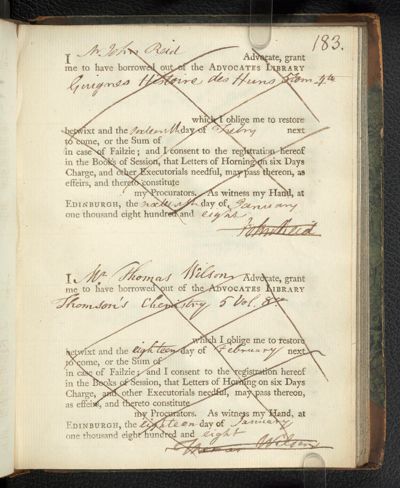 183.
I Mr John Reid Advocate, grant
me to have borrowed out of the ADVOCATES LIBRARY
Guignes Histoire des Huns 5 tom. 4to
which I oblige me to restore
betwixt and the sixteenth day of Febry next
to come, or the Sum of
in case of Failzie; and I consent to the registration hereof
in the Books of Session, that Letters of Horning on six Days
Charge, and other Executorials needful, may pass thereon, as
effeirs, and thereto constitute
my Procurators. As witness my Hand, at
EDINBURGH, the sixteenth day of January
one thousand eight hundred and eight
John Reid
I Mr Thomas Wilson Advocate, grant
me to have borrowed out of the ADVOCATES LIBRARY
Thomson's Chemistry 5 Vol. 8vo
which I oblige me to restore
betwixt and the eighteen day of February next
to come, or the Sum of
in case of Failzie; and I consent to the registration hereof
in the Books of Session, that Letters of Horning on six Days
Charge, and other Executorials needful, may pass thereon,
as effeirs, and thereto constitute
my Procurators. As witness my Hand, at
EDINBURGH, the eighteen day of January
one thousand eight hundred and eight
Thomas Wilson